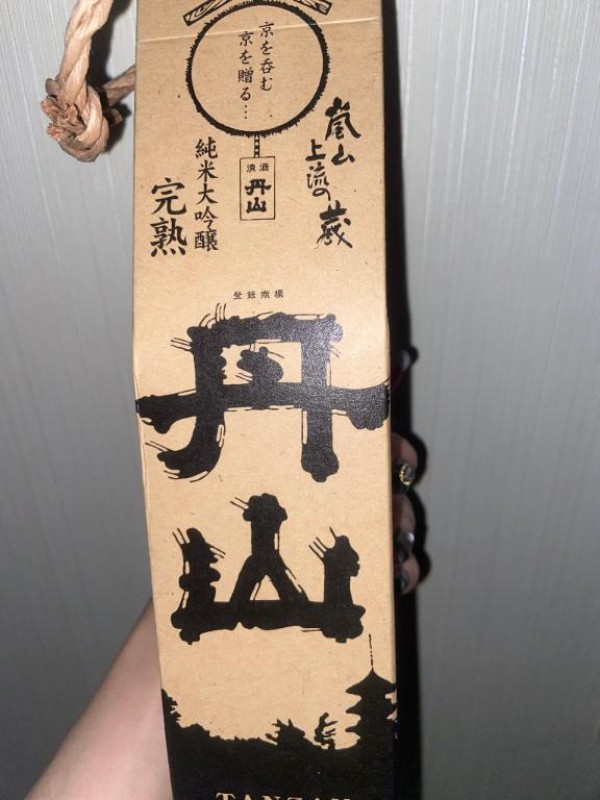 京を呑む
京を贈る…
嵐山
上流の蔵
清酒
丹山
純米大吟醸
完熟
登録商標
丹山
TANZAN